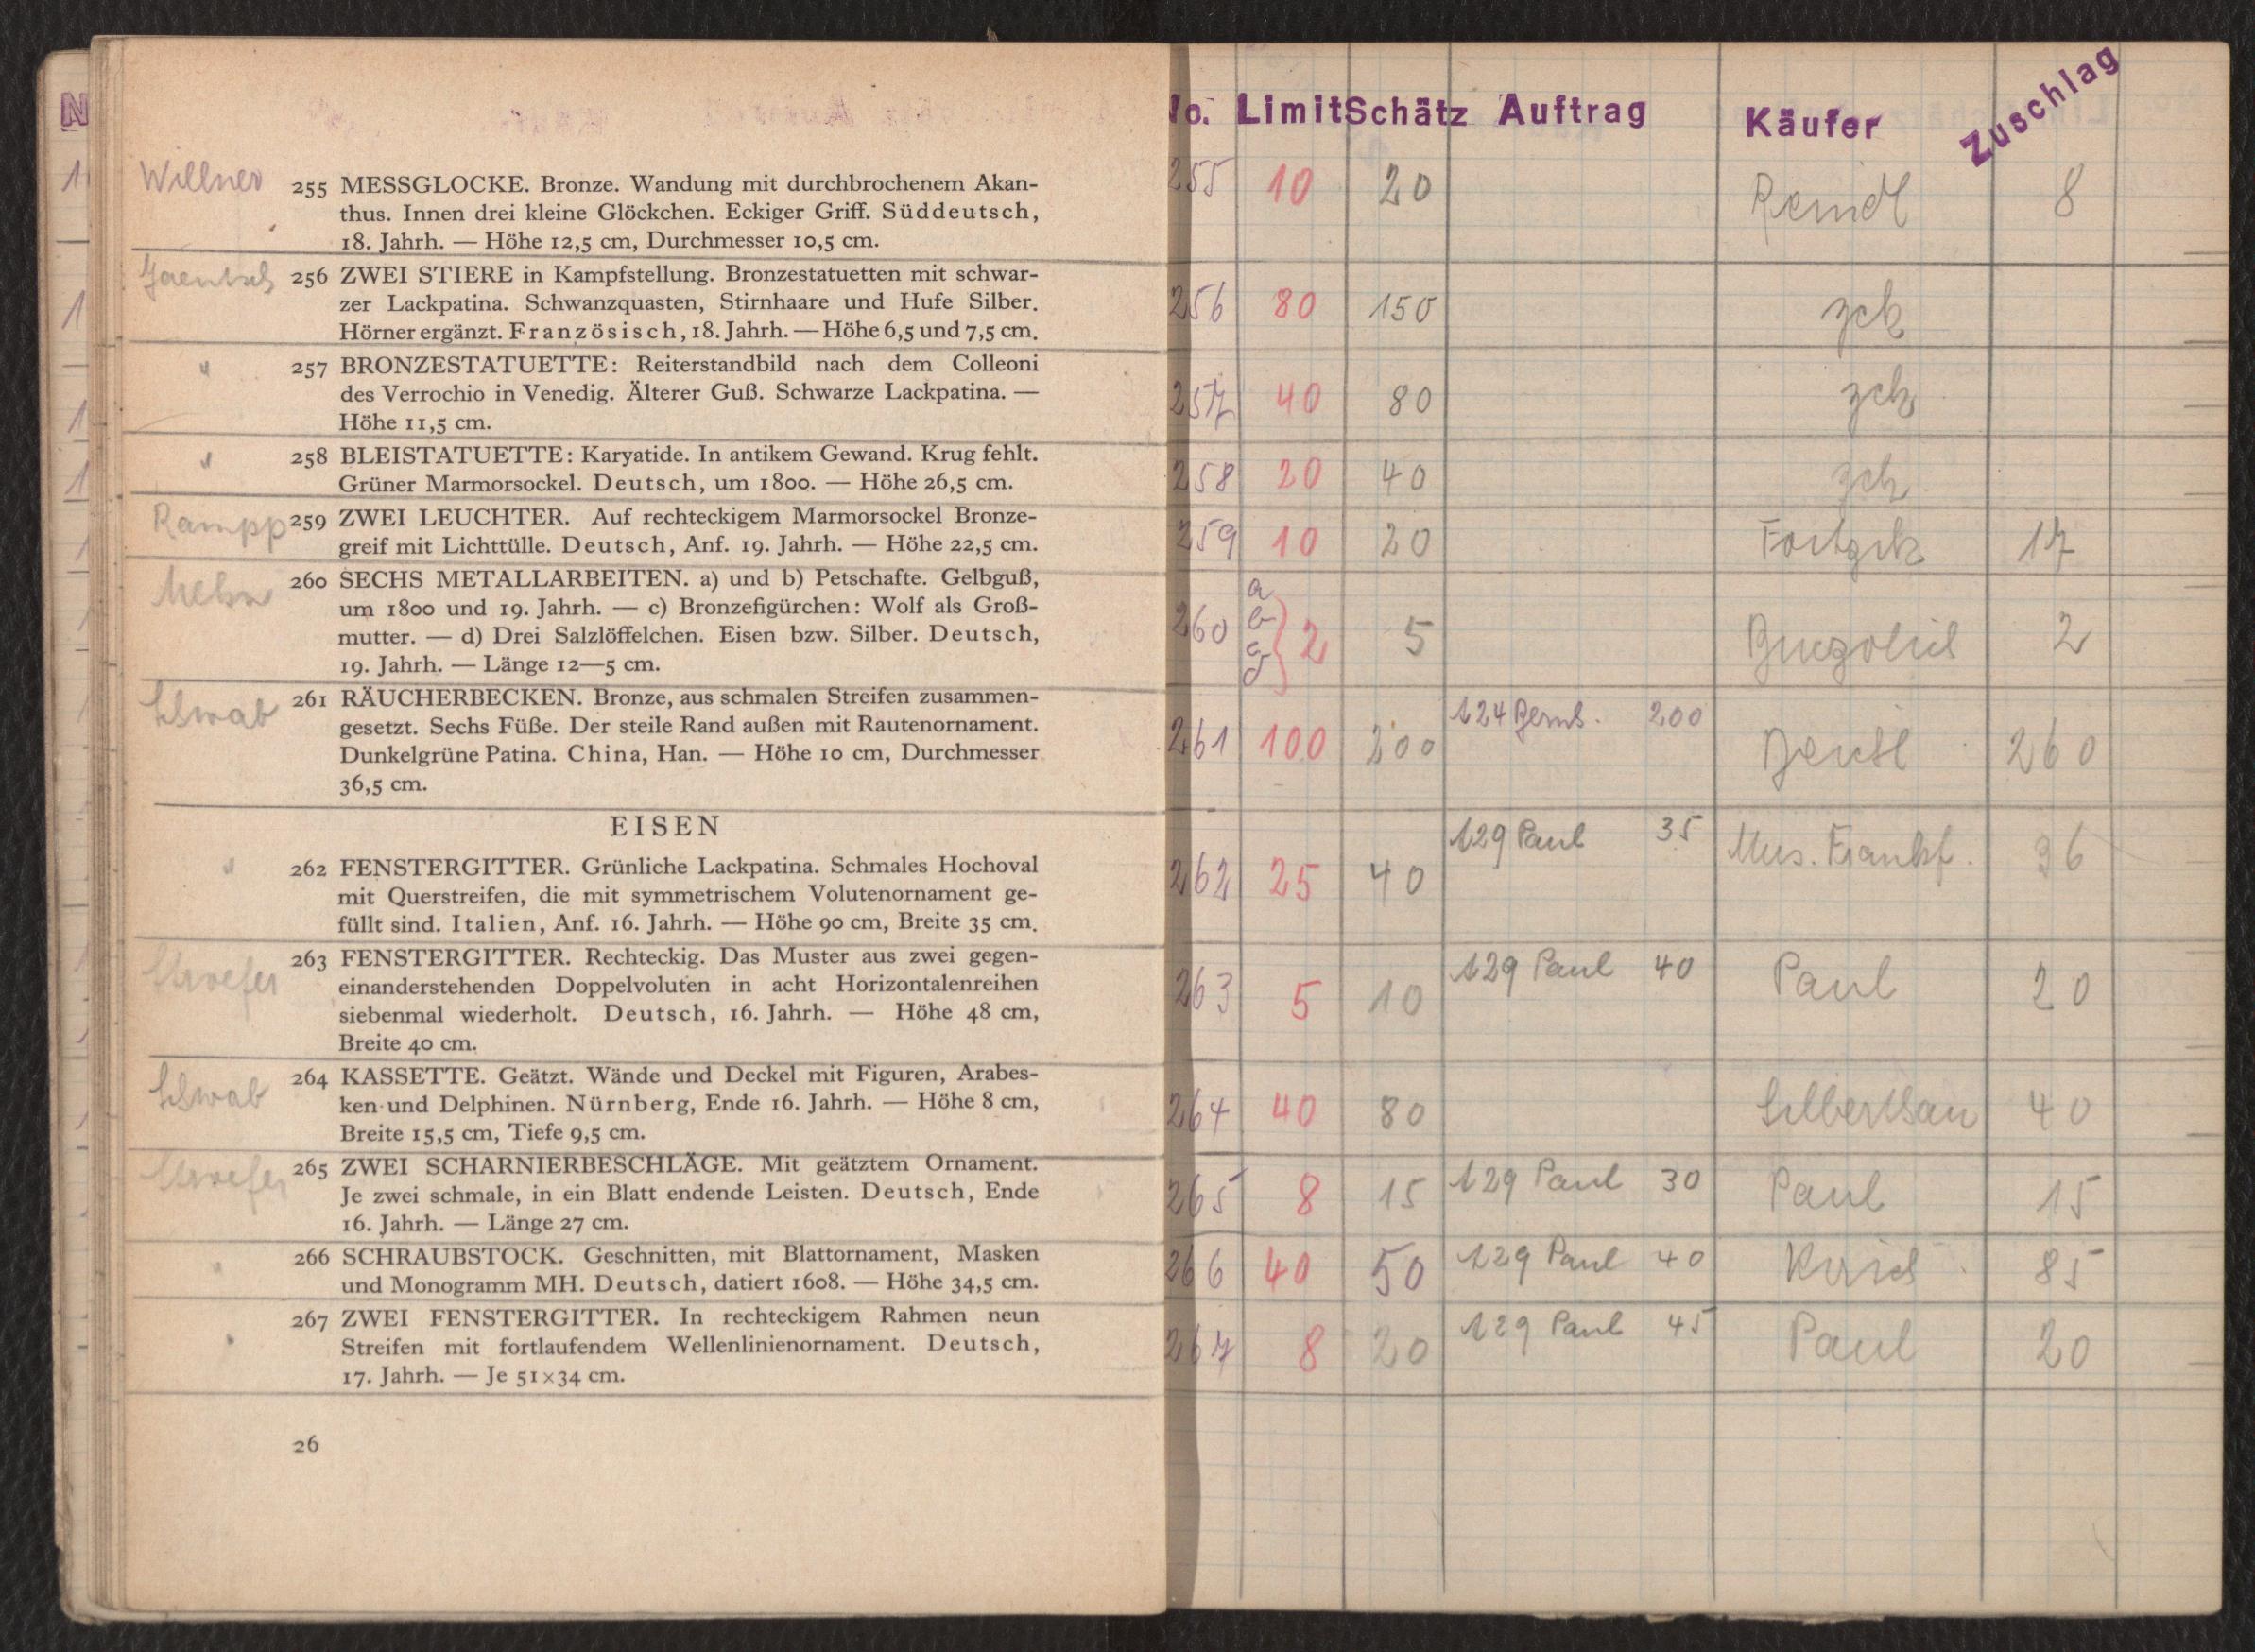 Willner
255 MESSGLOCKE. Bronze. Wandung mit durchbrochenem Akan-
thus. Innen drei kleine Glöckchen. Eckiger Griff. Süddeutsch,
18. Jahrh. — Höhe 12,5 cm, Durchmesser 10,5 cm.
256 ZWEI STIERE in Kampfstellung. Bronzestatuetten mit schwar-
zer Lackpatina. Schwanzquasten, Stirnhaare und Hufe Silber.
Hörner ergänzt. Französisch, 18. Jahrh. — Höhe 6,5 und 7,5 cm.
" 257 BRONZESTATUETTE: Reiterstandbild nach dem Colleoni
des Verrochio in Venedig. Älterer Guß. Schwarze Lackpatina. —
Höhe 11,5 cm.
" 258 BLEISTATUETTE: Karyatide. In antikem Gewand. Krug fehlt.
Grüner Marmorsockel. Deutsch, um 1800. — Höhe 26,5 cm.
Rampp 259 ZWEI LEUCHTER. Auf rechteckigem Marmorsockel Bronze-
greif mit Lichttülle. Deutsch, Anf. 19. Jahrh. — Höhe 22,5 cm.
260 SECHS METALLARBEITEN. a) und b) Petschafte. Gelbguß,
um 1800 und 19. Jahrh. — c) Bronzefigürchen: Wolf als Groß-
mutter. — d) Drei Salzlöffelchen. Eisen bzw. Silber. Deutsch,
19. Jahrh. — Länge 12—5 cm.
Schwab 261 RÄUCHERBECKEN. Bronze, aus schmalen Streifen zusammen-
gesetzt. Sechs Füße. Der steile Rand außen mit Rautenornament.
Dunkelgrüne Patina. China, Han. — Höhe 10 cm, Durchmesser
36,5 cm.
EISEN
" 262 FENSTERGITTER. Grünliche Lackpatina. Schmales Hochoval
mit Querstreifen, die mit symmetrischem Volutenornament ge-
füllt sind. Italien, Anf. 16. Jahrh. — Höhe 90 cm, Breite 35 cm.
263 FENSTERGITTER. Rechteckig. Das Muster aus zwei gegen-
einanderstehenden Doppelvoluten in acht Horizontalenreihen
siebenmal wiederholt. Deutsch, 16. Jahrh. — Höhe 48 cm,
Breite 40 cm.
Schwab 264 KASSETTE. Geätzt. Wände und Deckel mit Figuren, Arabes-
ken und Delphinen. Nürnberg, Ende 16. Jahrh. — Höhe 8 cm,
Breite 15,5 cm, Tiefe 9,5 cm.
265 ZWEI SCHARNIERBESCHLÄGE. Mit geätztem Ornament.
Je zwei schmale, in ein Blatt endende Leisten. Deutsch, Ende
16. Jahrh. — Länge 27 cm.
266 SCHRAUBSTOCK. Geschnitten, mit Blattornament, Masken
und Monogramm MH. Deutsch, datiert 1608. — Höhe 34,5 cm.
267 ZWEI FENSTERGITTER. In rechteckigem Rahmen neun
Streifen mit fortlaufendem Wellenlinienornament. Deutsch,
17. Jahrh. — Je 51×34 cm.
26
No. Limit Schätz Auftrag Käufer Zuschlag
255 10 20 Reindl 8
256 80 150 zck
257 40 80 zck
258 20 40 zck
259 10 20 17
260 a b c d 2 5 2
261 100 200 124 200 260
262 25 40 129 Paul 35 Mus. Frankf. 36
263 5 10 129 Paul 40 Paul 20
264 40 80 40
265 8 15 129 Paul 30 Paul 15
266 40 50 129 Paul 40 85
267 8 20 129 Paul 45 Paul 20